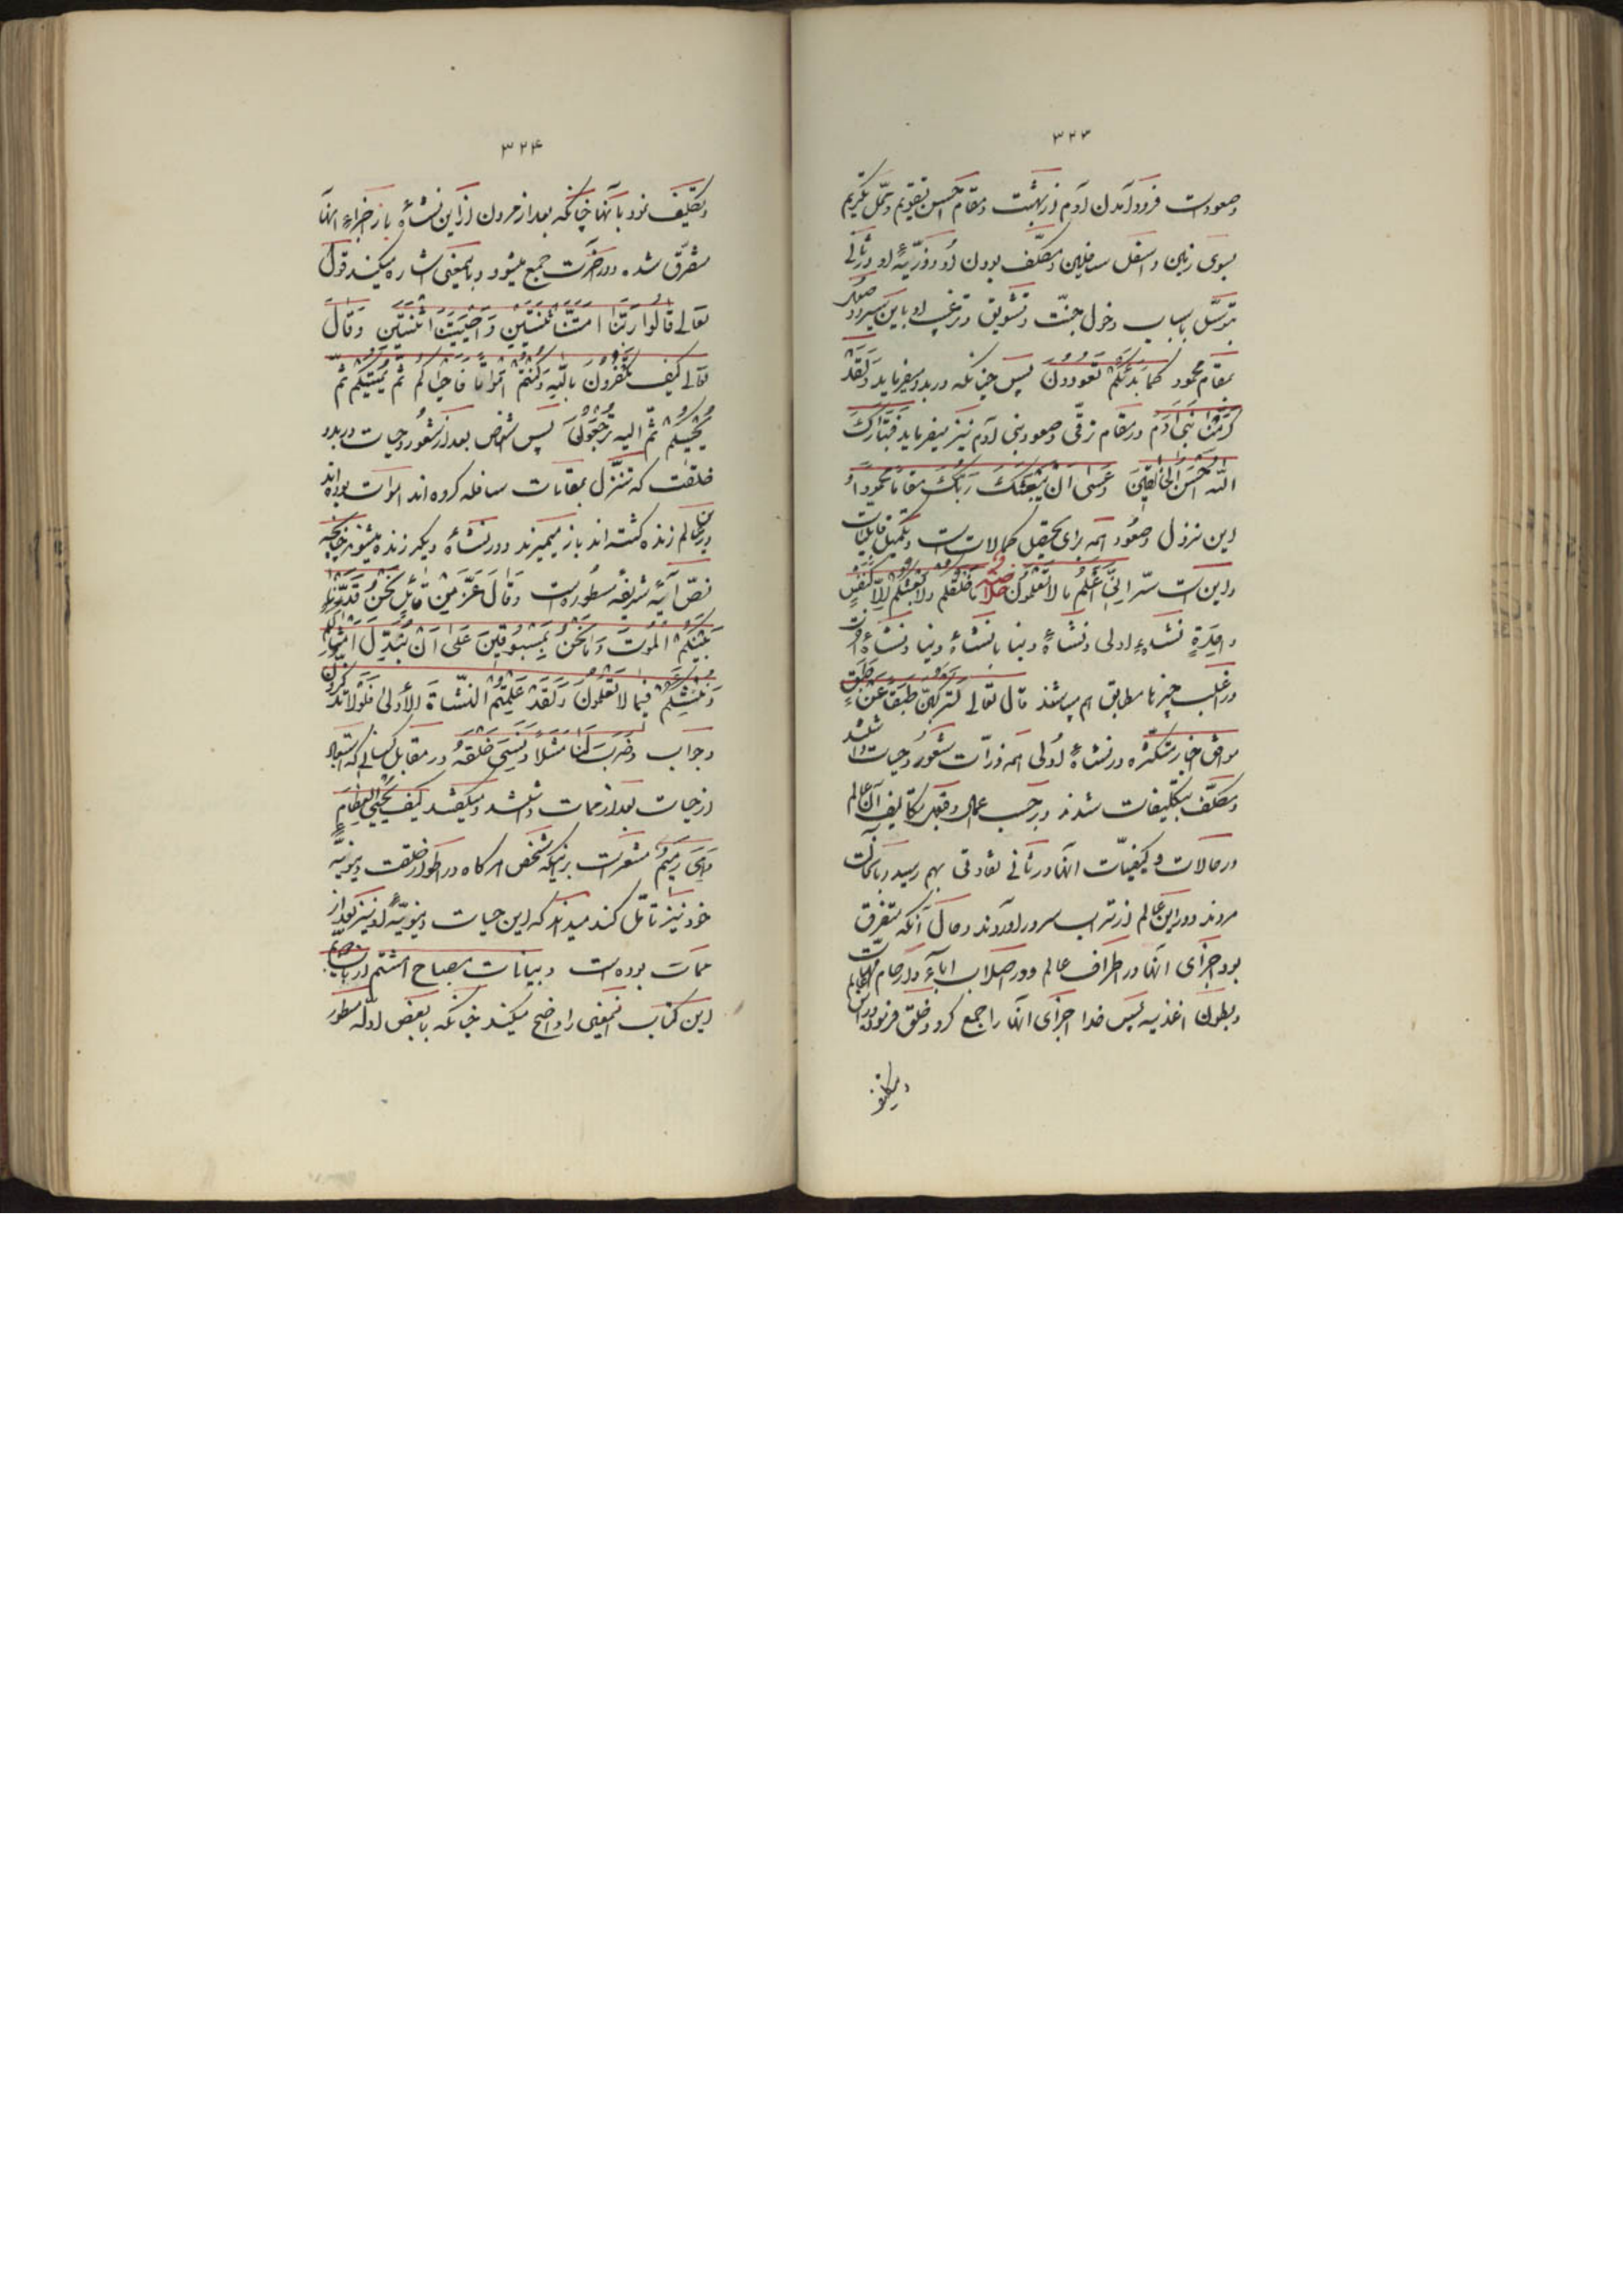 ۳۲۳
وصعودست فرود آمدن آدم از بهشت ومقام احسن تقویم ومحل تکریم
بسوی زمین و اسفل سافلین ومکلف بودن او و ذریّهٔ او در ثانی
بتوسّل باسباب دخول جنّت وتشویق وترغیب او باین سیر وصعود
بمقام محمود کما بدئکم تعودون پس چنانکه در بدو میفرماید ولقد
کرّمنا بنی آدم در مقام ترقّی وصعود بنی آدم نیز میفرماید فتبارک
الله احسن الخالقین وعسی ان یبعثک ربّک مقاما محمودا و
این نزول وصعود همه برای تحصیل کمالات است وتکمیل قابلیات
واین است سرّ انّی اعلم ما لا تعلمون خلاصه ما خلقکم ولا بعثکم الّا کنفس
واحدة نشاءهٔ اولی ونشاءهٔ دنیا با نشاءهٔ دنیا ونشاءهٔ آخرت
در اغلب چیزها مطابق هم میباشند قال تعالی لترکبنّ طبقا عن طبق
موافق اخبار متکثّره در نشاءهٔ اولی همه ذرّات شعور وحیات داشتند
ومکلّف بتکلیفات شدند وبرحسب اعمال وقبول تکالیف آن عالم
در حالات و کیفیّات آنها در ثانی تفاوتی بهم رسید وبا نجات
مردند ودر این عالم از تراب سر در آوردند وحال آنکه متفرق
بود اجزای آنها در اطراف عالم ودر اصلاب آباء وارحام امّهات
وبطون اغذیه پس خدا اجزای آنها را جمع کرد وخلق فرمود در این عالم
وتکلیف
۳۲۴
وتکلیف نمود بآنها چنانکه بعد از مردن از این نشاءه باز اجزاء آنها
متفرّق شده ودر آخرت جمع میشود وباینمعنی اشاره میکند قول
تعالی قالوا ربّنا امتّنا اثنتین واحییتنا اثنتین وقال
تعالی کیف تکفرون بالله وکنتم امواتا فاحیاکم ثمّ یمیتکم ثمّ
یحییکم ثمّ الیه ترجعون پس اشخاص بعد از شعور وحیات در بدو
خلقت که تنزّل بمقامات سافله کرده اند اموات بوده اند
ودر این عالم زنده گشته اند باز میمیرند ودر نشاءهٔ دیگر زنده میشوند چنانچه
نصّ آیه شریفه مسطوره است وقال عزّ من قائل نحن قدّرنا
بینکم الموت وما نحن بمسبوقین علی ان نبدّل امثالکم
وننشئکم فیما لا تعلمون ولقد علمتم النّشأة الأولی فلولا تذکّرون
وجواب وضرب لنا مثلا ونسی خلقه در مقابل کسانی که استبعاد
از حیات بعد از ممات داشتند ومیگفتند کیف یحیی العظام
وهی رمیم مشعر است بر اینکه شخص هرگاه در اطوار خلقت دنیویّه
خود نیز تأمّل کند میداند که این حیات دنیویّهٔ او نیز بعد از
ممات بوده است وبیانات مصباح هشتم از باب
این کتاب اینمعنی را واضح میکند چنانکه با بعض ادلّه مسطور